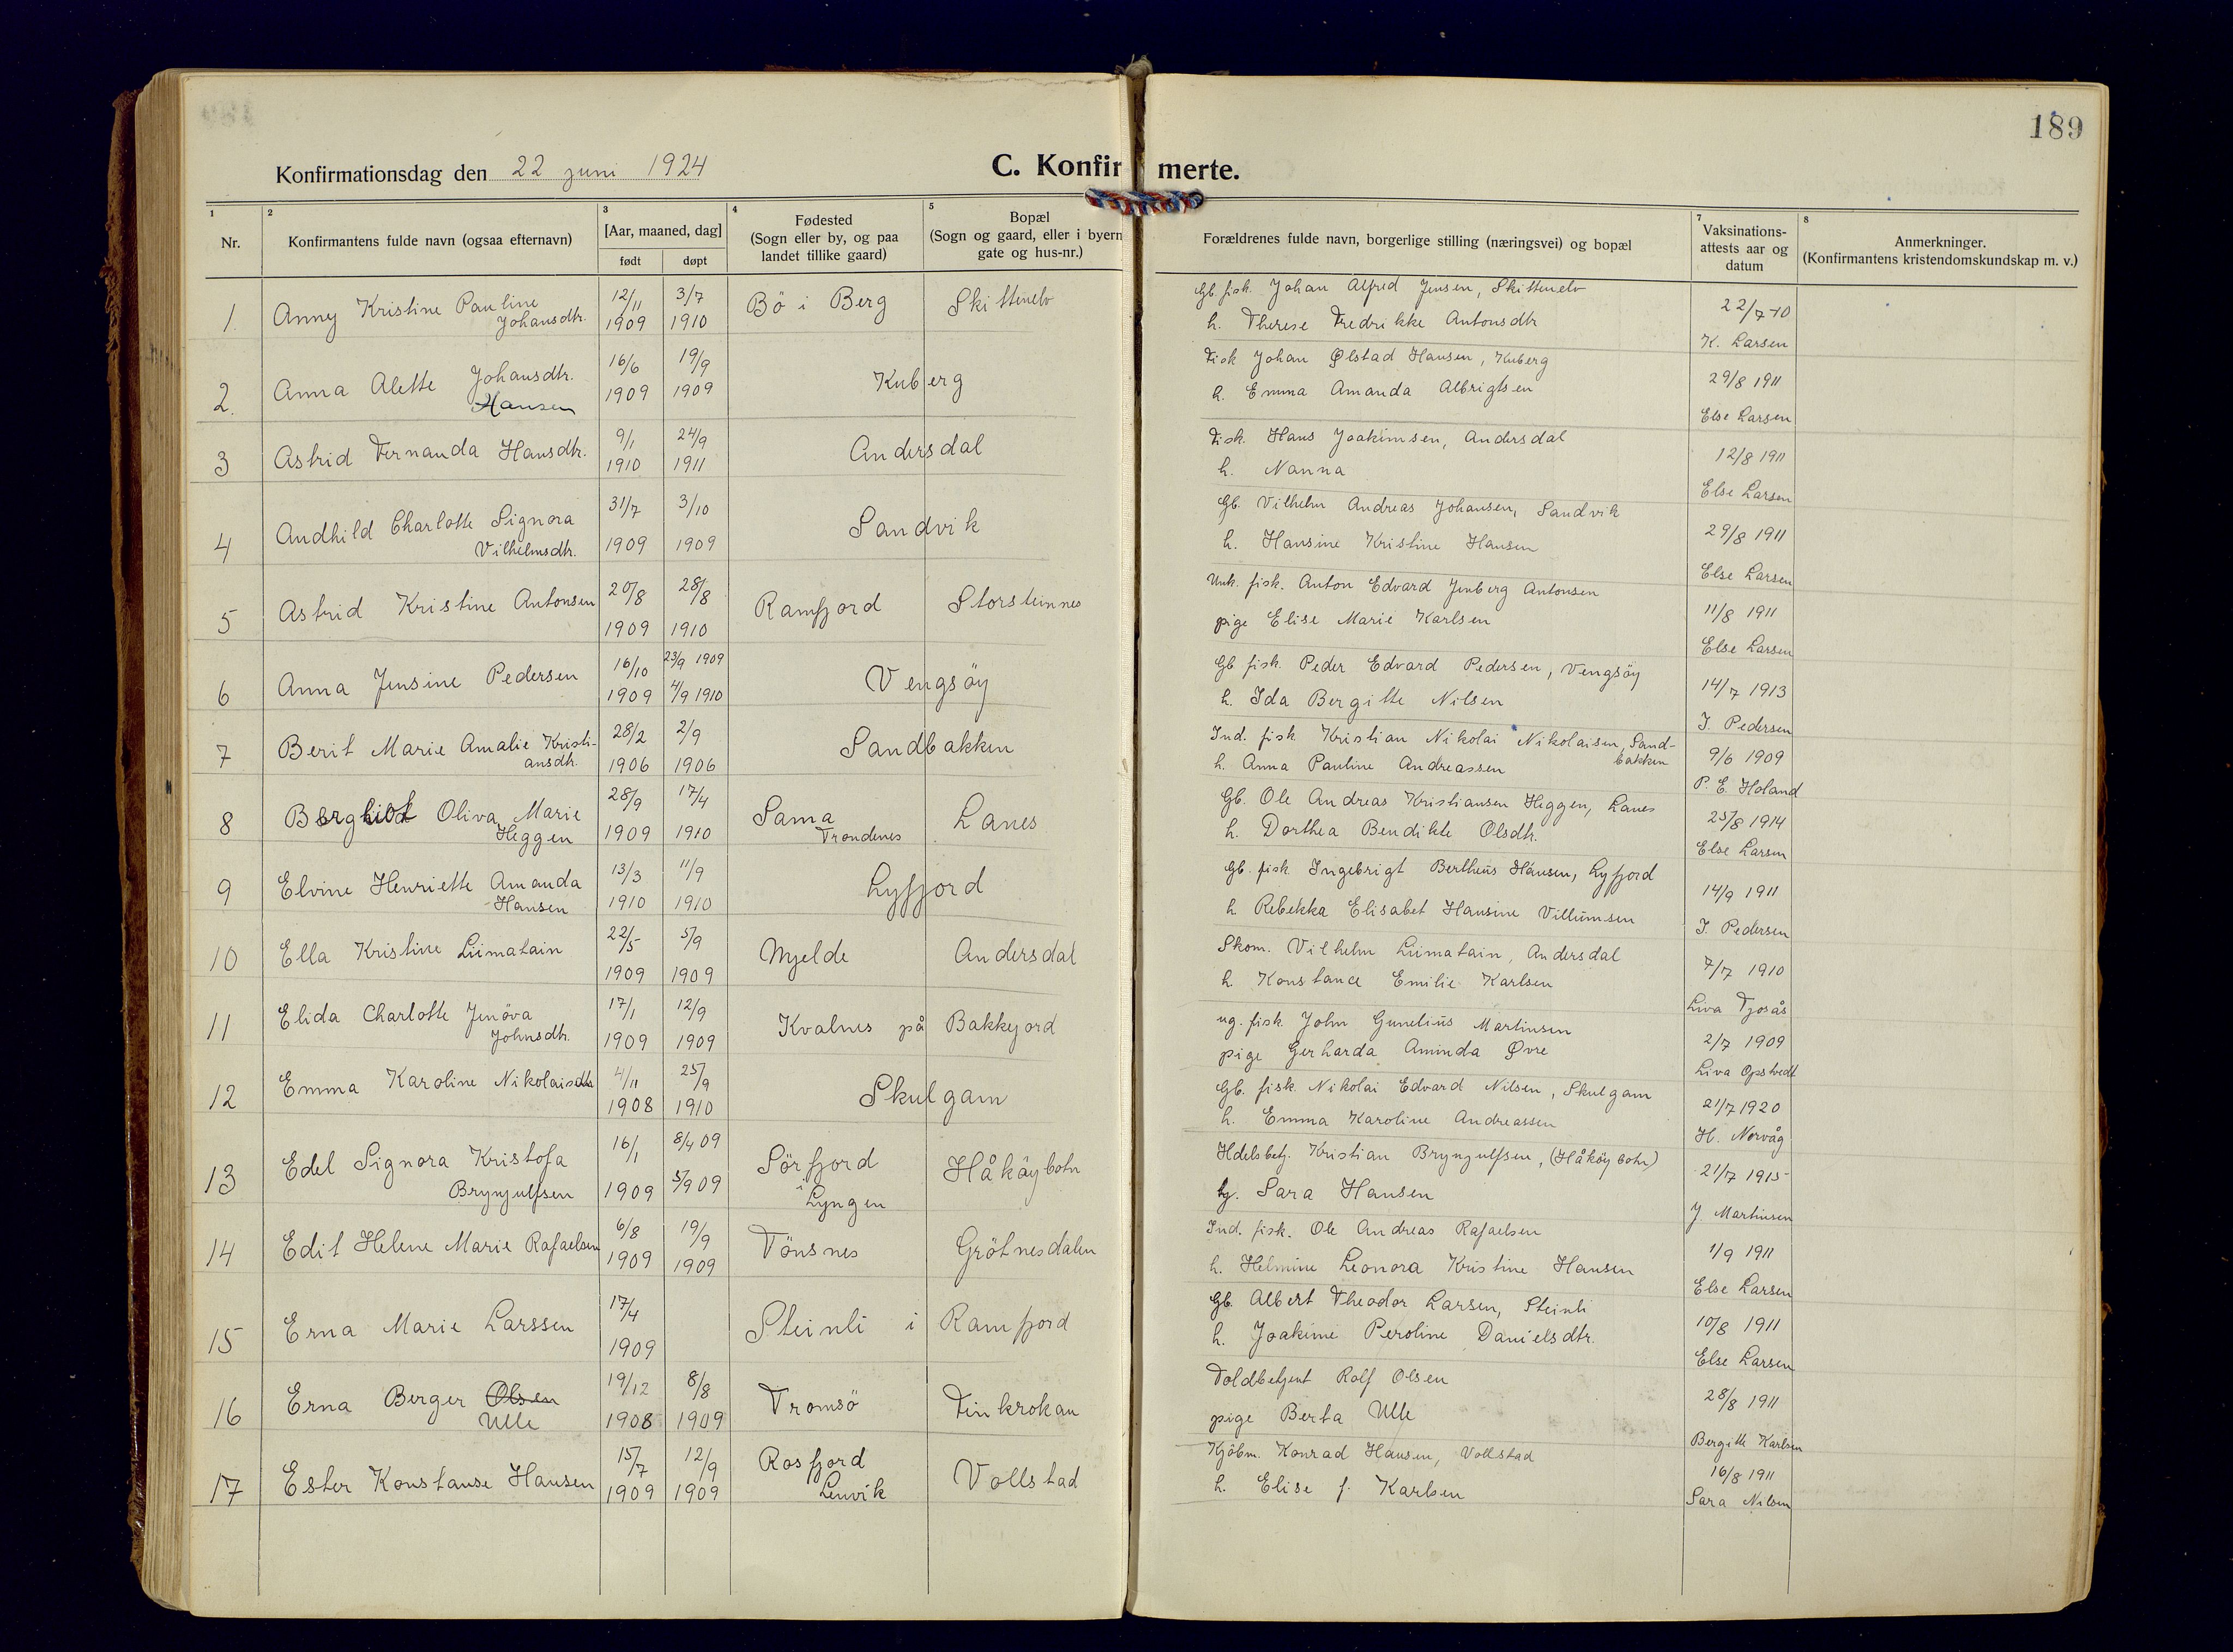 189
Konfirmationsdag den 22 juni 1924
C. Konfirmerte.
1 Nr.
2 Konfirmantens fulde navn (ogsaa efternavn)
3 [Aar, maaned, dag]
født døpt
4 Fødested
(Sogn eller by, og paa
landet tillike gaard)
5 Bopæl
(Sogn og gaard, eller i byern
gate og hus-nr.)
Forældrenes fulde navn, borgerlige stilling (næringsvei) og bopæl
7 Vaksinations-
attests aar og
datum
8 Anmerkninger.
(Konfirmantens kristendomskundskap m. v.)
1 Anny Kristine Pauline 12/11 3/7 Bö i Berg Skittenelv Gb. fisk. Johan Alfred Jensen, Skittenelv 22/7-10
Johansdtr. 1909 1910 h. Therese Fredrikke Antonsdtr K. Larsen
2. Anna Alette Johansdtr. 16/6 19/9 Kuberg Fisk Johan Ølstad Hansen, Kuberg 29/8 1911
Hansen 1909 1909 h. Emma Amanda Albrigtsen Else Larsen
3 Astrid Fernanda Hansdtr. 9/1 24/9 Andersdal Fisk. Hans Joakimsen, Andersdal 12/8 1911
1910 1911 h. Nanna Else Larsen
4 Andhild Charlotte Signora 31/7 3/10 Sandvik Gb. Vilhelm Andreas Johansen, Sandvik 29/8 1911
Vilhelmsdtr. 1909 1909 h. Hansine Kristine Hansen Else Larsen
5 Astrid Kristine Antonsen 20/8 28/8 Ramfjord Storsteinnes Unk. fisk. Anton Edvard Jenberg Antonsen 11/8 1911
1909 1910 pige Elise Marie Karlsen Else Larsen
6 Anna Jensine Pedersen 16/10 23/9 1909 Vengsöy Gb fisk. Peder Edvard Pedersen, Vengsöy 14/7 1913
1909 4/9 1910 h. Ida Bergitte Nilsen J. Pedersen
7 Berit Marie Amalie Kristi- 28/2 2/9 Sandbakken Ind. fisk Kristian Nikolai Nikolaisen, Sand- 9/6 1909
ansdtr. 1906 1906 h. Anna Pauline Andreassen bakken P. E. Holand
8 Bergliot Oliva Marie 28/9 17/4 Sama Lanes Gb. Ole Andreas Kristiansen Heggen, Lanes 25/8 1914
Heggen 1909 1910 Trondenes h. Dorthea Bendikte Olsdtr. Else Larsen
9 Elvine Henriette Amanda 13/3 11/9 Lyfjord Gb. fisk Ingebrigt Bertheus Hansen, Lyfjord 14/9 1911
Hansen 1910 1910 h Rebekka Elisabet Hansine Villumsen J. Pedersen
10 Ella Kristine Liimatain 22/5 5/9 Mjelde Andersdal Skom. Vilhelm Liimatain, Andersdal 7/7 1910
1909 1909 h. Konstance Emilie Karlsen Liva Tjosås
11 Elida Charlotte Jenöva 17/1 12/9 Kvalnes på Bakkejord ug. fisk John Gunelius Martinsen 2/7 1909
Johnsdtr. 1909 1909 pige Gerharda Aminda Øvre Liva Opstvedt
12 Emma Karoline Nikolaisdtr 4/11 25/9 Skulgam Gb. fisk. Nikolai Edvard Nilsen, Skulgam 21/7 1920
1908 1910 h. Emma Karoline Andreassen H. Norvåg
13 Edel Signora Kristofa 16/1 8/4 09 Sörfjord Håköybotn Hdelsbetj. Kristian Brynjulfsen, (Håköybotn) 21/7 1915
Brynjulfsen 1909 5/9 09 i Lyngen hj. Sara Hansen J. Martinsen
14 Edit Helene Marie Rafaelsen 6/8 19/9 Tönsnes Grötnesdalen Ind. fisk. Ole Andreas Rafaelsen 1/9 1911
1909 1909 h. Helmine Leonora Kristine Hansen Else Larsen
15 Erna Marie Larssen 17/4 Steinli i Ramfjord Gb. Albert Theodor Larsen, Steinli 10/8 1911
1909 h. Joakime Peroline Danielsdtr. Else Larsen
16 Erna Berger Olsen 19/12 8/8 Tromsö Finkrokan Toldbetjent Rolf Olsen 28/8 1911
Ulle 1908 1909 pige Berta Ulle Bergitte Karlsen
17 Ester Konstanse Hansen 15/7 12/9 Rosfjord Vollstad Kjöbm. Konrad Hansen, Vollstad 16/8 1911
1909 1909 Lenvik h. Elise f. Karlsen Sara Nilsen